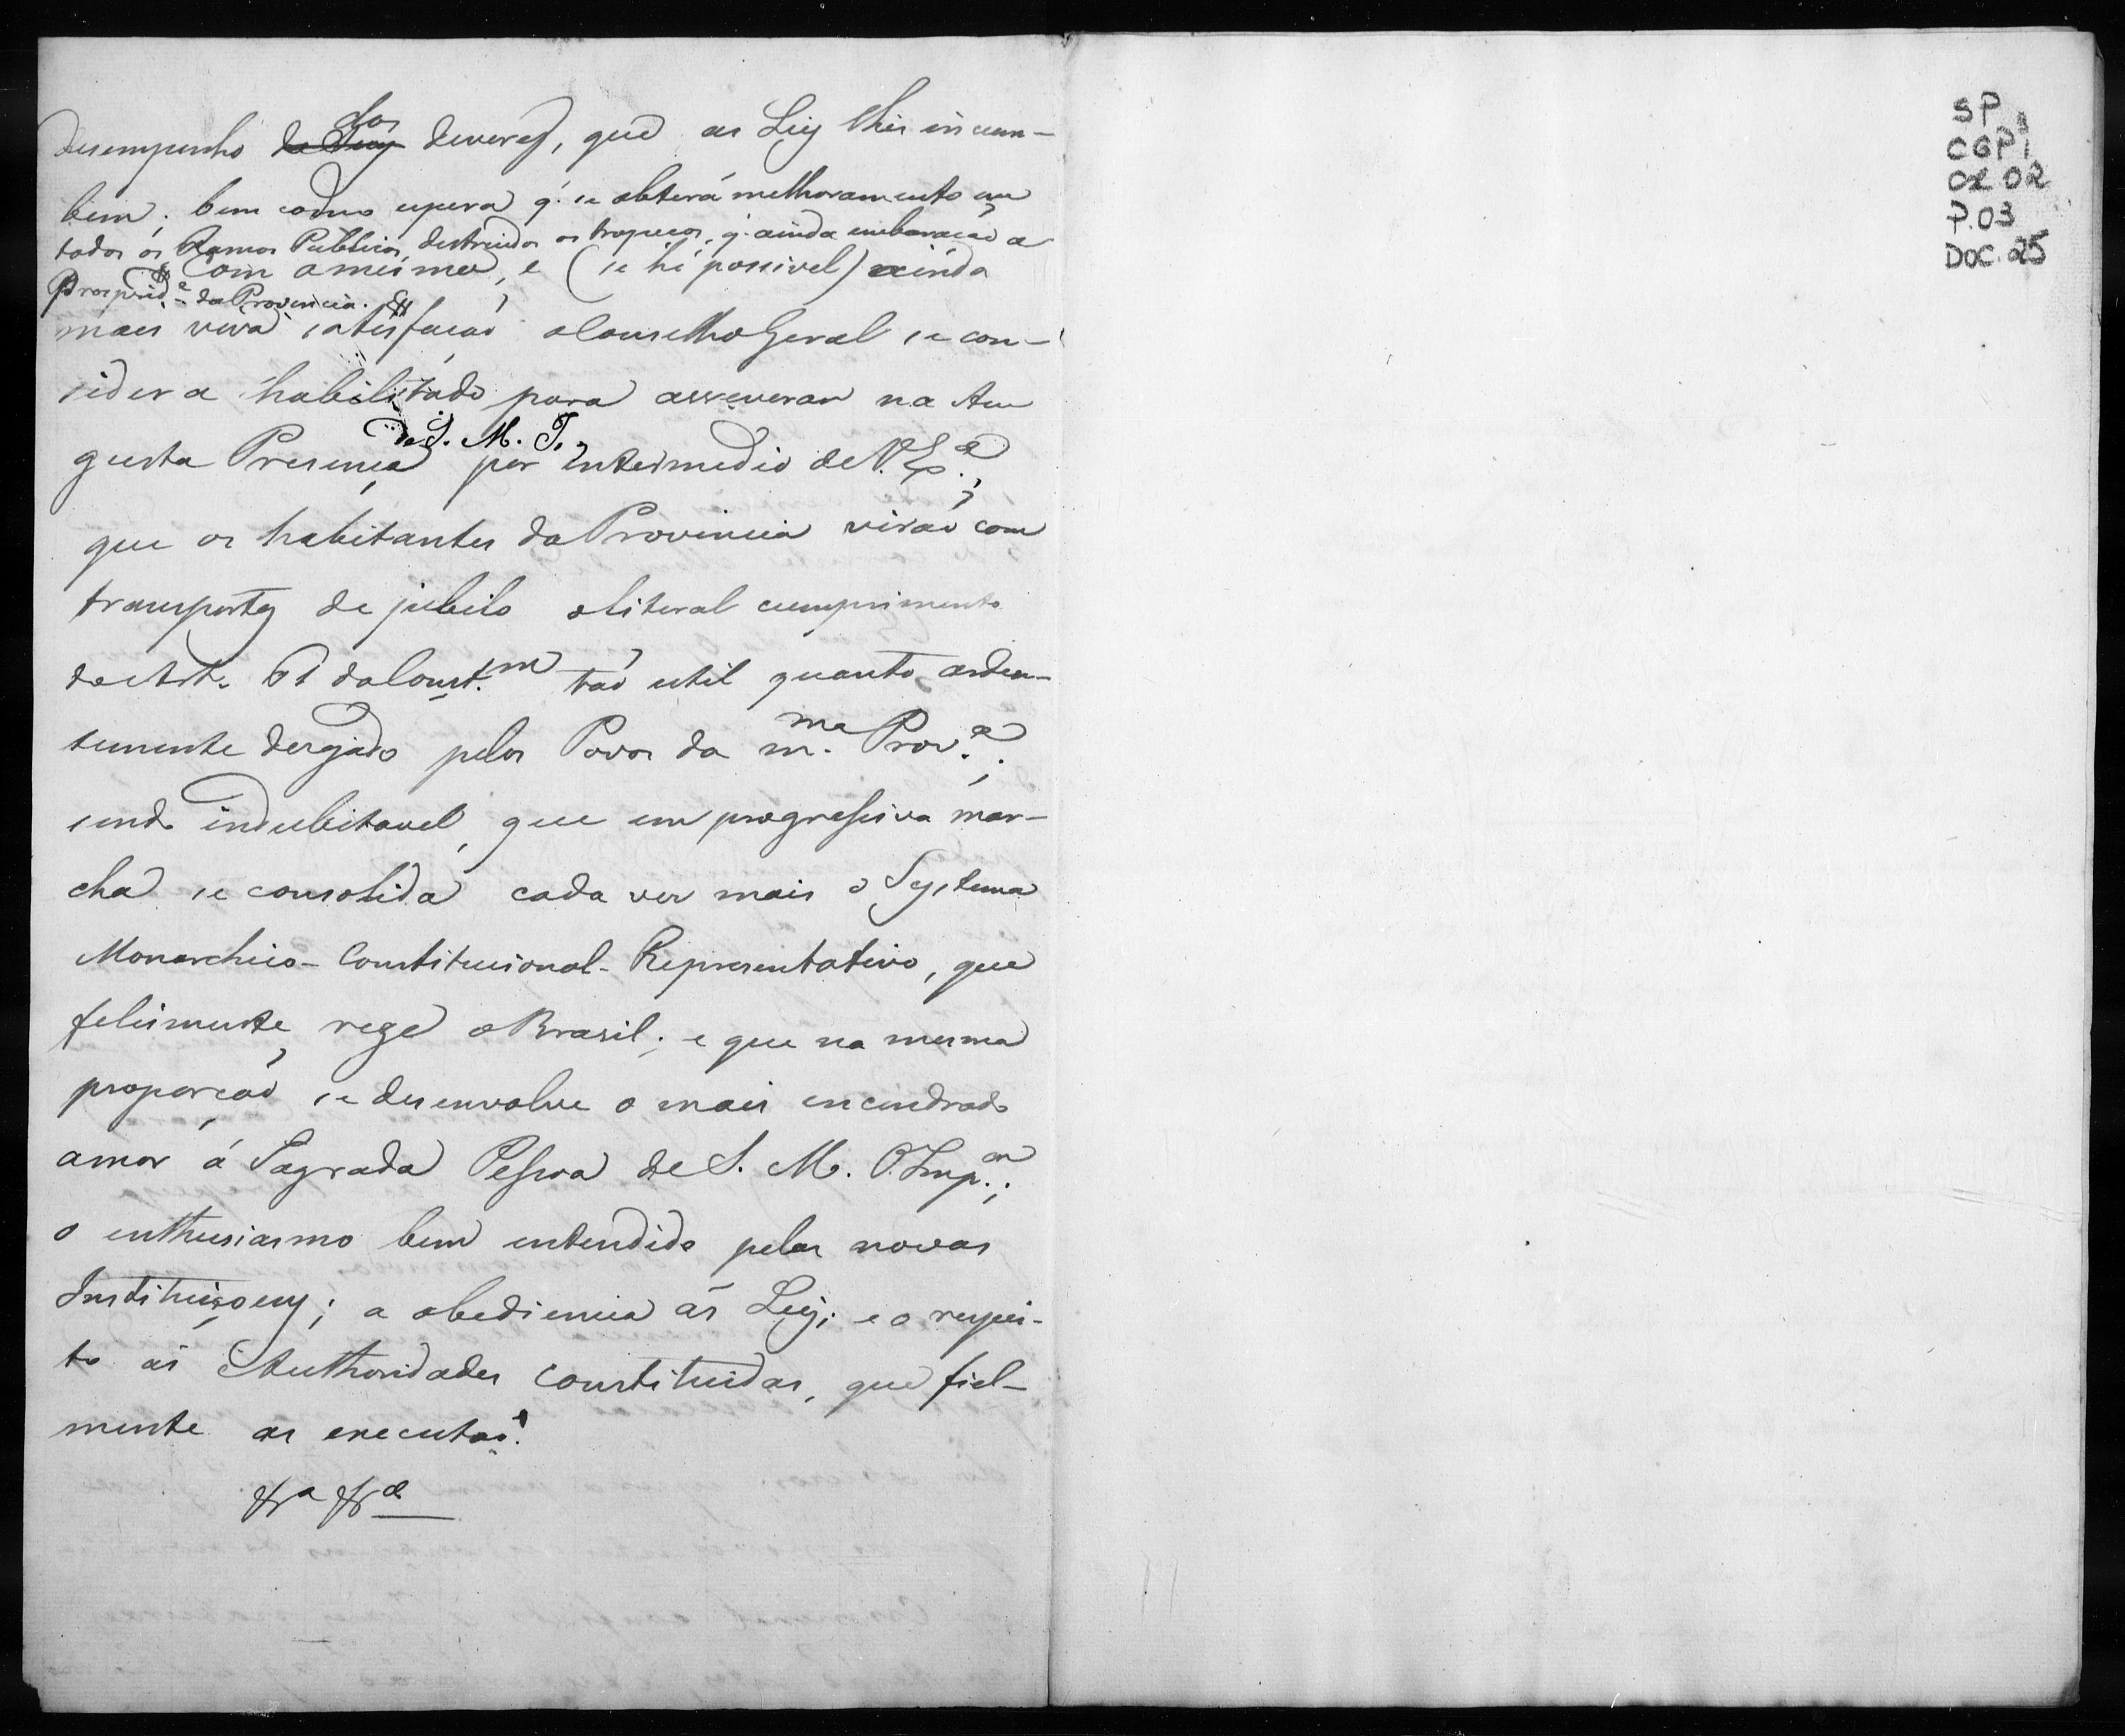 desempenho dos deveres, que as Leis lhes incum-
bem; bem como espera q. se obterá melhoramento em
todos os Ramos Publicos, destruidos os tropeços, q. ainda embaração a
Prosperid.e da Provincia.
Com a mesma, e (se hé possivel) ainda
mais viva satisfação o Conselho Geral se con-
sidera habilitado para asseverar na Au
gusta Presença de S. M. I., por intermedio de V. Ex.a,
que os habitantes da Provincia virão com
transportes de jubilo o literal cumprimento
do Art. 61 da Const.m tão util quanto arden-
temente desejado pelos Povos da m.ma Prov.a;
sendo indubitavel, que em progressiva mar-
cha se consolida cada vez mais o Systema
Monarchico-Constitucional-Representativo, que
felismente rege o Brasil; e que na mesma
proporção se desenvolve o mais encendrado
amor á Sagrada Pessoa de S. M. O Imp.or;
o enthusiasmo bem entendido pelas novas
Instituições; a obediencia ás Leis; e o respei-
to ás Authoridades constituidas, que fiel-
mente as executão.
&a &a
SP
CGP1
CX 02
P.03
DOC.25